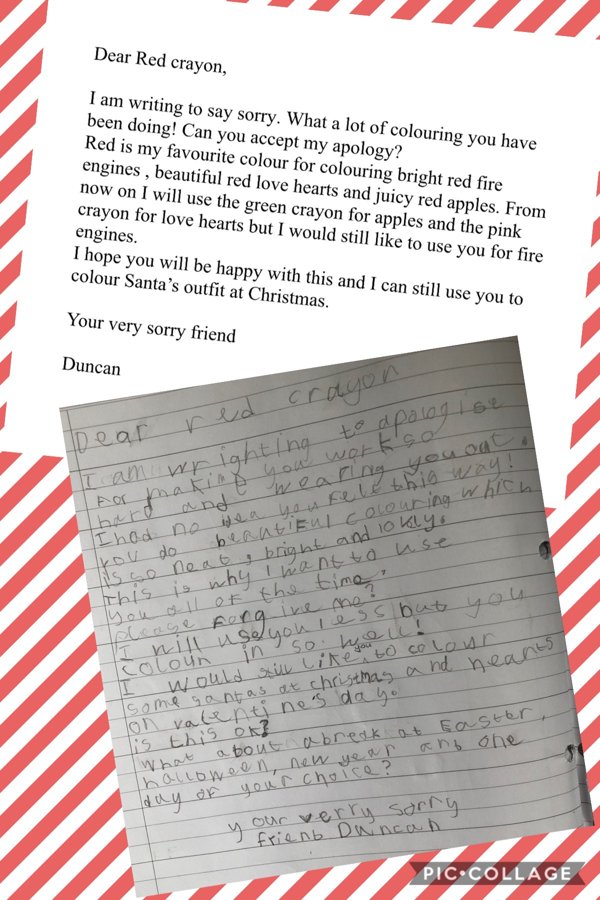 Dear Red crayon,
I am writing to say sorry. What a lot of colouring you have
been doing! Can you accept my apology?
Red is my favourite colour for colouring bright red fire
engines , beautiful red love hearts and juicy red apples. From
now on I will use the green crayon for apples and the pink
crayon for love hearts but I would still like to use you for fire
engines.
I hope you will be happy with this and I can still use you to
colour Santa’s outfit at Christmas.
Your very sorry friend
Duncan
Dear red crayon
I am wrighting to apologise
For making you work so
hard and wearing you out.
I had no idea you felt this way!
you do beautiful colouring which
is so neat, bright and lovly.
This is why I want to use
you all of the time.
please forgive me?
I will use you less but you
colour in so well!
I would still like you to colour
some santas at christmas and hearts
on valentine's day.
is this ok?
what about a break at Easter,
halloween, new year and one
day of your choice?
your verry sorry
frienb Duncan
PIC•COLLAGE